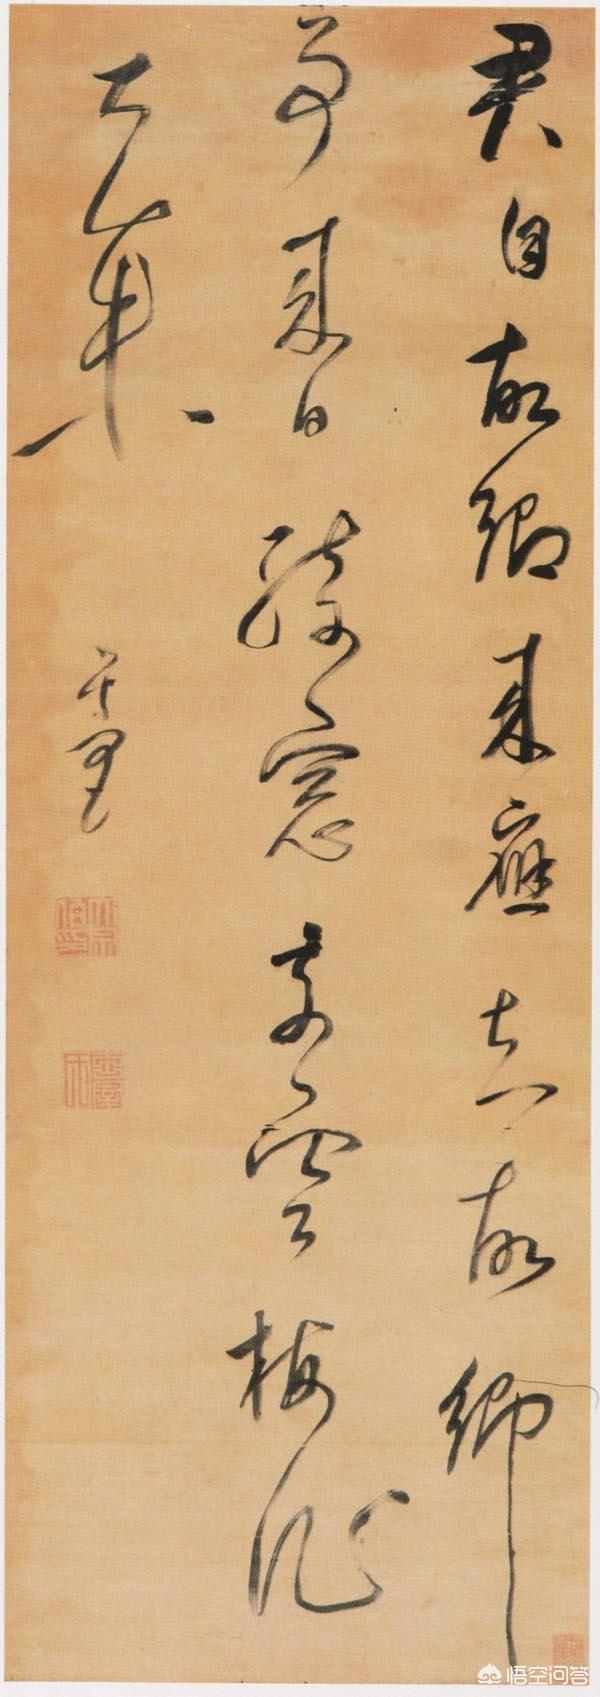 君自故鄉來應知故鄉
事來日綺窓前寒梅
未
其昌
悟空问答